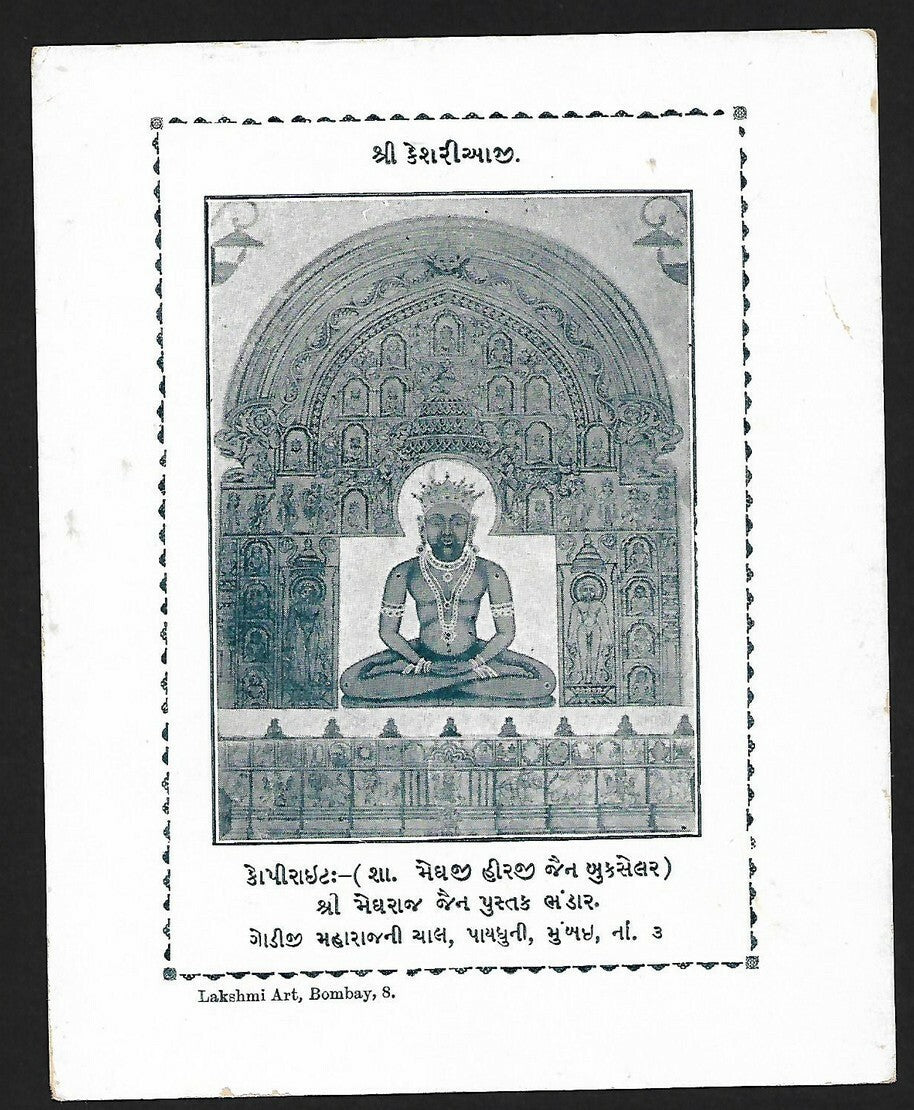 શ્રી કેશરીઆજી.
કોપીરાઇટઃ-( શા. મેઘજી હીરજી જૈન બુકસેલર )
શ્રી મેઘરાજ જૈન પુસ્તક ભંડાર.
ગોડીજી મહારાજની ચાલ, પાયધુની, મુંબઇ, નાં. ૩
Lakshmi Art, Bombay, 8.